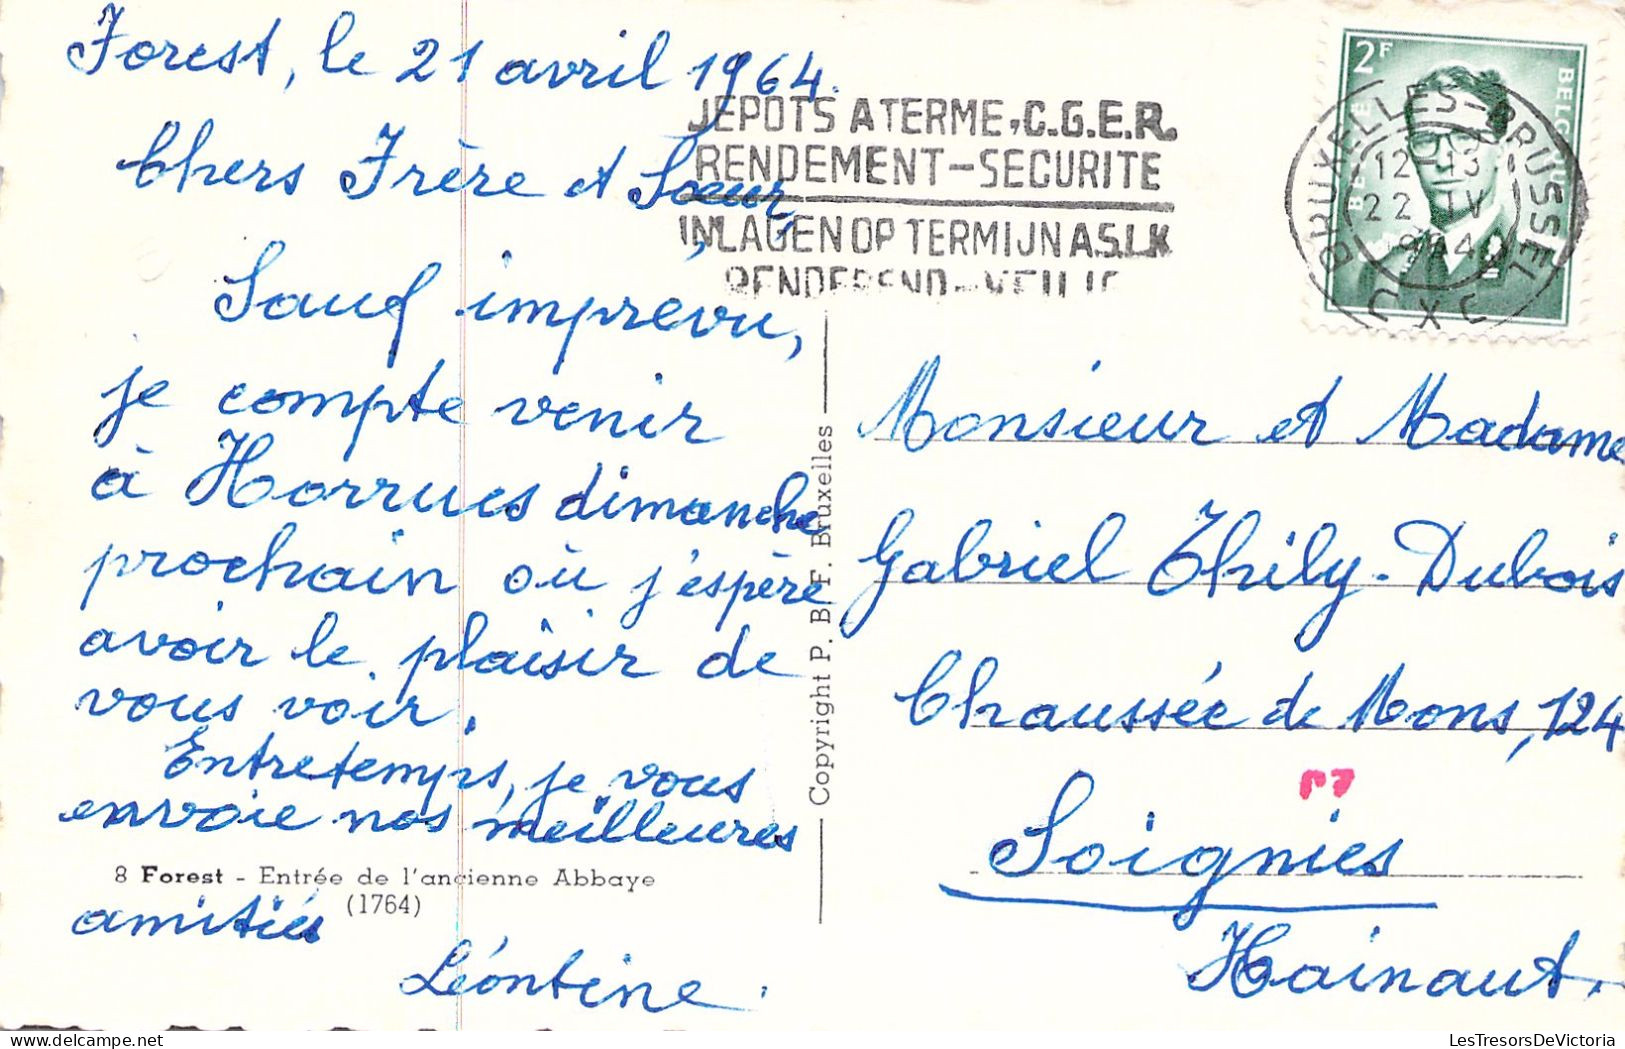 Forest, le 21 avril 1964.
Chers Frère et Sœur,
Sauf imprévu,
je compte venir
à Horrues dimanche
prochain où j'espère
avoir le plaisir de
vous voir.
Entretemps, je vous
envoie nos meilleures
amitiés
Léontine.
8 Forest - Entrée de l'ancienne Abbaye
(1764)
Copyright P. B. F. Bruxelles
DEPOTS A TERME, C.G.E.R.
RENDEMENT-SECURITE
INLAGEN OP TERMIJN A.S.L.K
RENDEREND-VEILIG
2F
BELGIE
BELGIQUE
BRUXELLES-BRUSSEL
12-13
22 IV
1964
X
Monsieur et Madame
Gabriel Thily-Dubois
Chaussée de Mons, 124
Soignies
Hainaut.
LesTresorsDeVictoria
delcampe.net